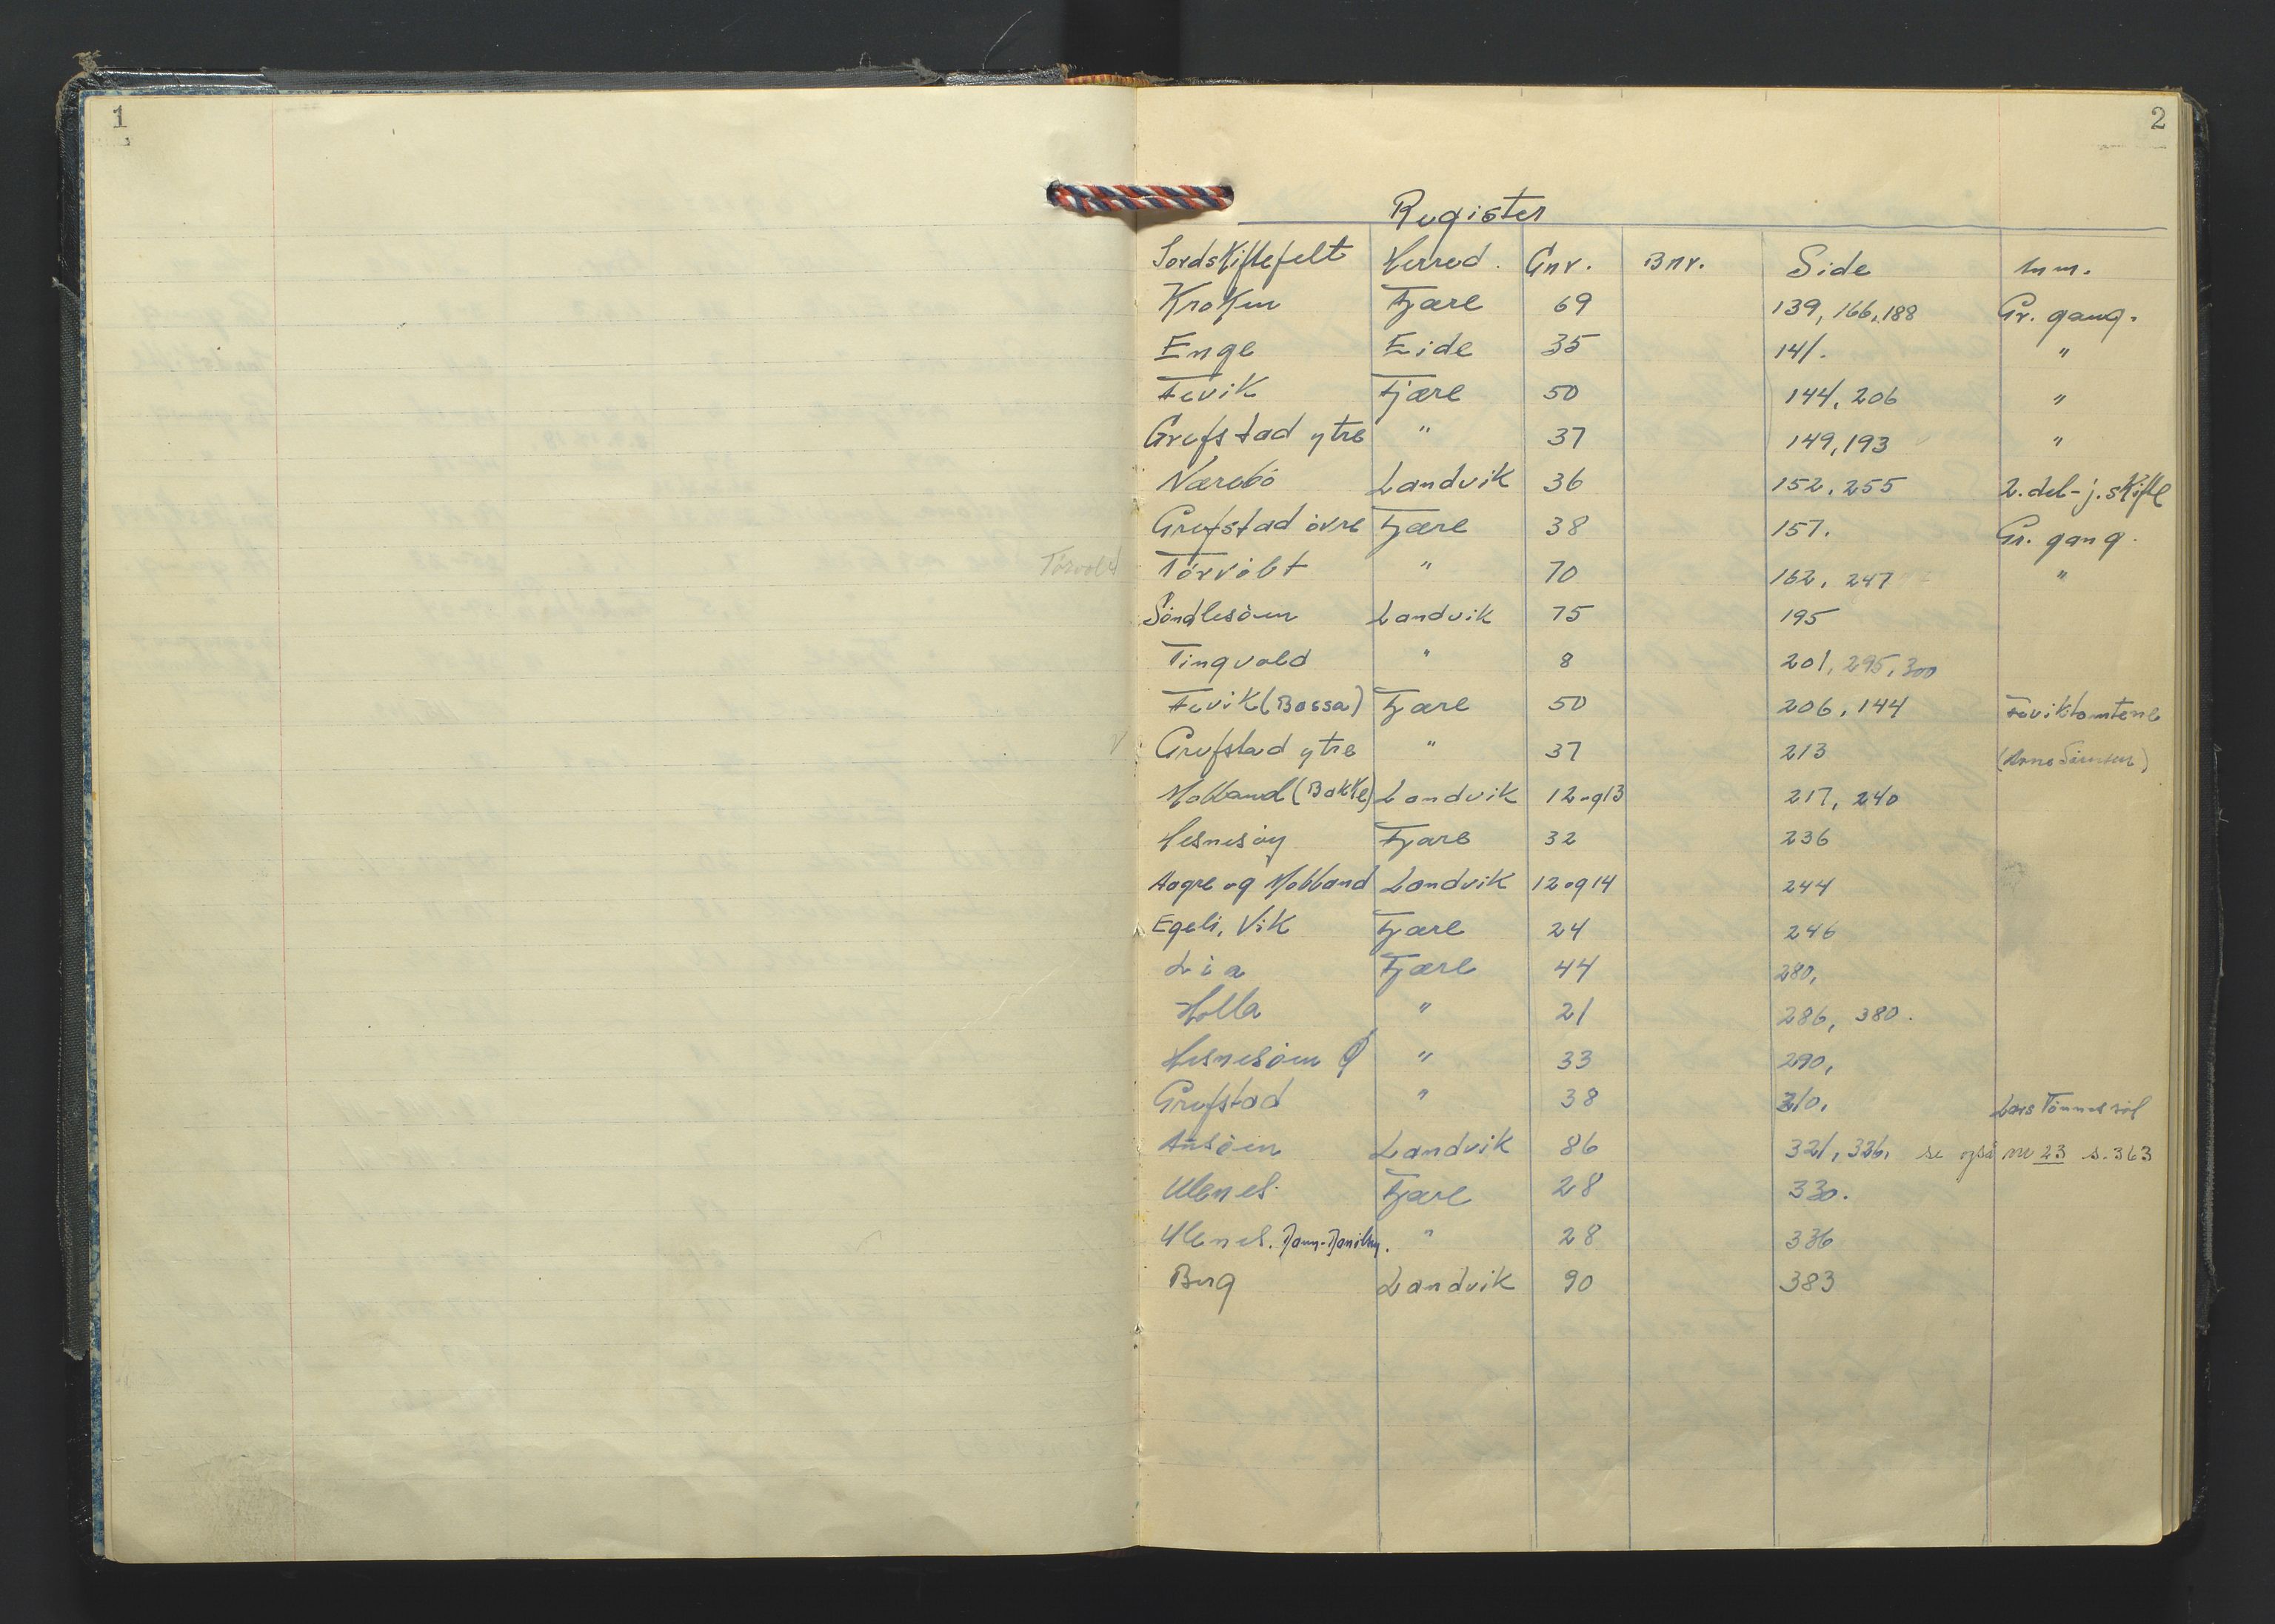 1
2
Register
Jordskiftefelt Herred. Gnr. Bnr. Side
Kroken Fjære 69 139, 166, 188 Gr. gang.
Enge Eide 35 141. "
Fevik Fjære 50 144, 206 "
Grefstad ytre " 37 149, 193 "
Nærebö Landvik 36 152, 255 2. del - j. skifte
Grefstad övre Fjære 38 157. Gr. gang.
Törvolt Törvolt " 70 162, 247 "
Söndlesöen Landvik 75 195
Tingvold " 8 201, 295, 300
Fevik (Bossa) Fjære 50 206, 144 Feviktomtene
Grefstad ytre " 37 213 (Arne
Molland (Bakke) Landvik 12 og 13 217, 240
Hesnesöy Fjære 32 236
Aagre og Molland Landvik 12 og 14 244
Egeli, Vik Fjære 24 246
Lia Fjære 44 280,
Holla " 21 286, 380.
Hesnesöen Ø " 33 290,
Grefstad " 38 310, Lars Tönnesöl
Landvik 86 321, 326, se også nr 23 s. 363
Ulenes Fjære 28 330.
Ulenes. " 28 336
Berg Landvik 90 383